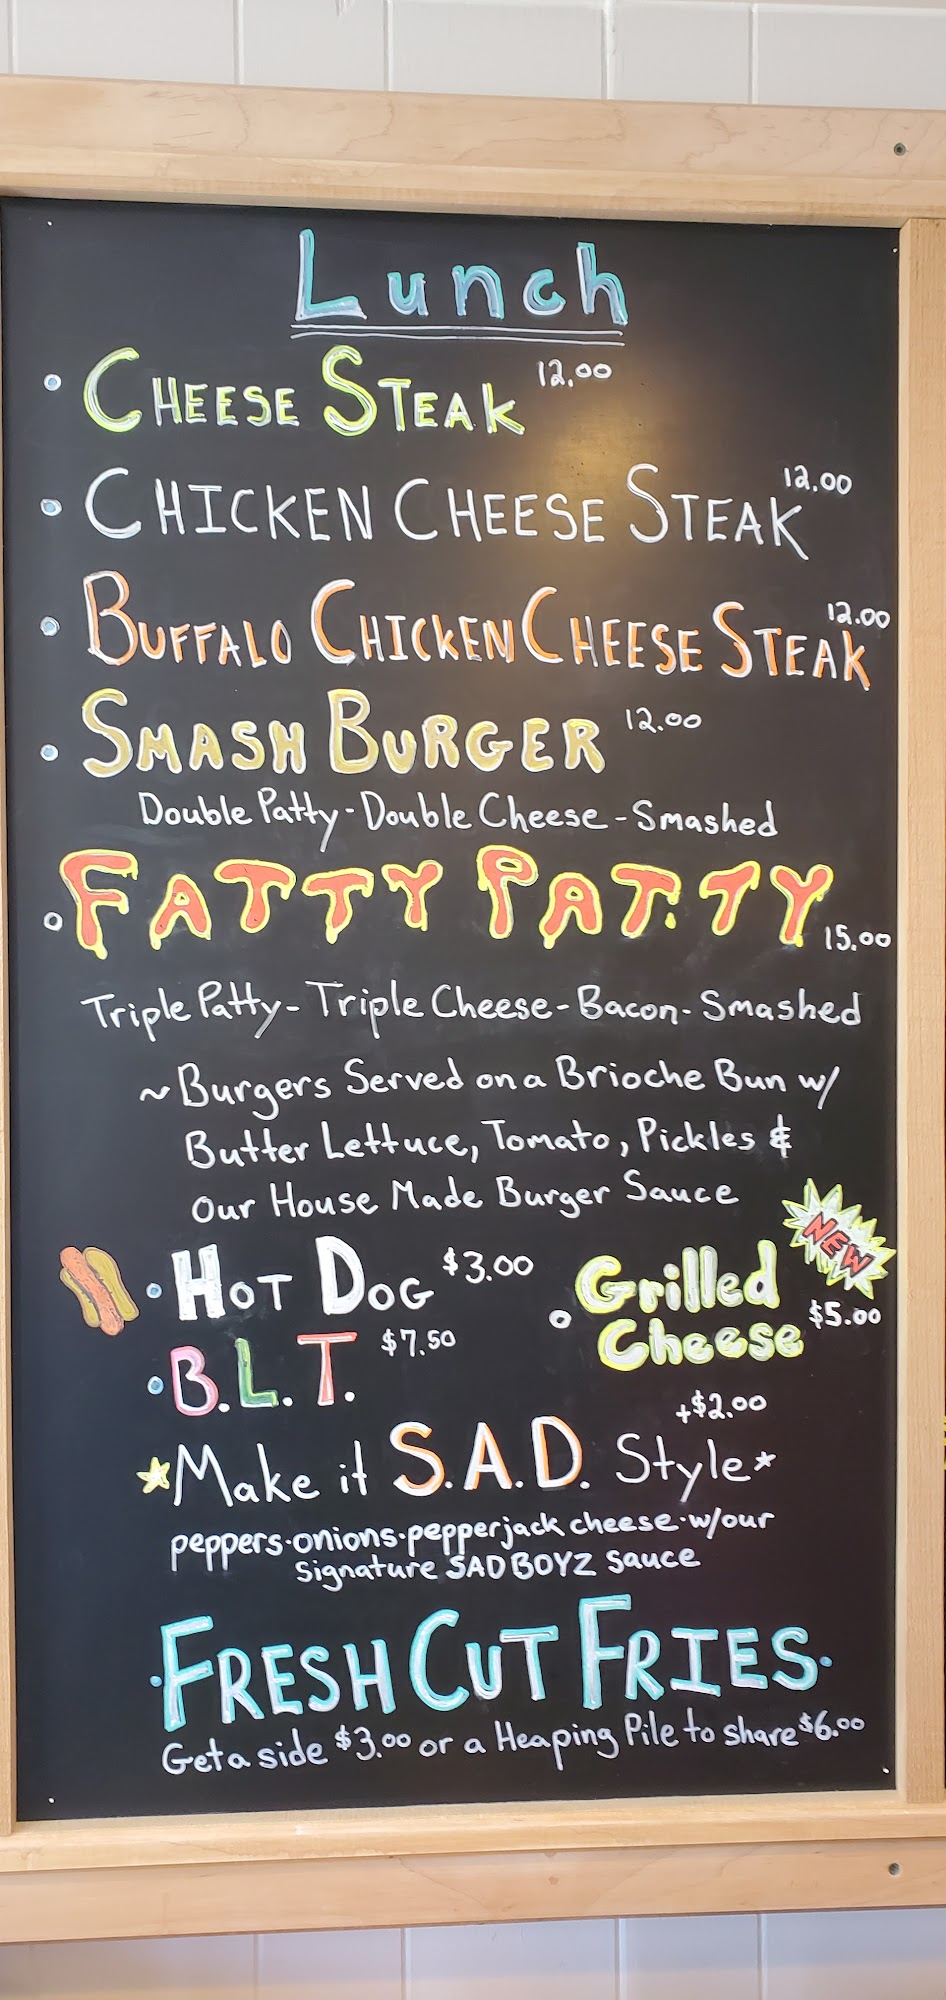 Lunch
• CHEESE STEAK 12.00
• CHICKEN CHEESE STEAK 12.00
• BUFFALO CHICKEN CHEESE STEAK 12.00
• SMASH BURGER 12.00
Double Patty - Double Cheese - Smashed
• FATTY PATTY 15.00
Triple Patty - Triple Cheese - Bacon - Smashed
~ Burgers Served on a Brioche Bun w/
Butter Lettuce, Tomato, Pickles &
Our House Made Burger Sauce
• HOT DOG $3.00
• B.L.T. $7.50
NEW
• Grilled
Cheese $5.00
+$2.00
*Make it S.A.D. Style*
peppers·onions·pepperjack cheese·w/our
Signature SAD BOYZ sauce
•FRESH CUT FRIES•
Get a side $3.00 or a Heaping Pile to share $6.00